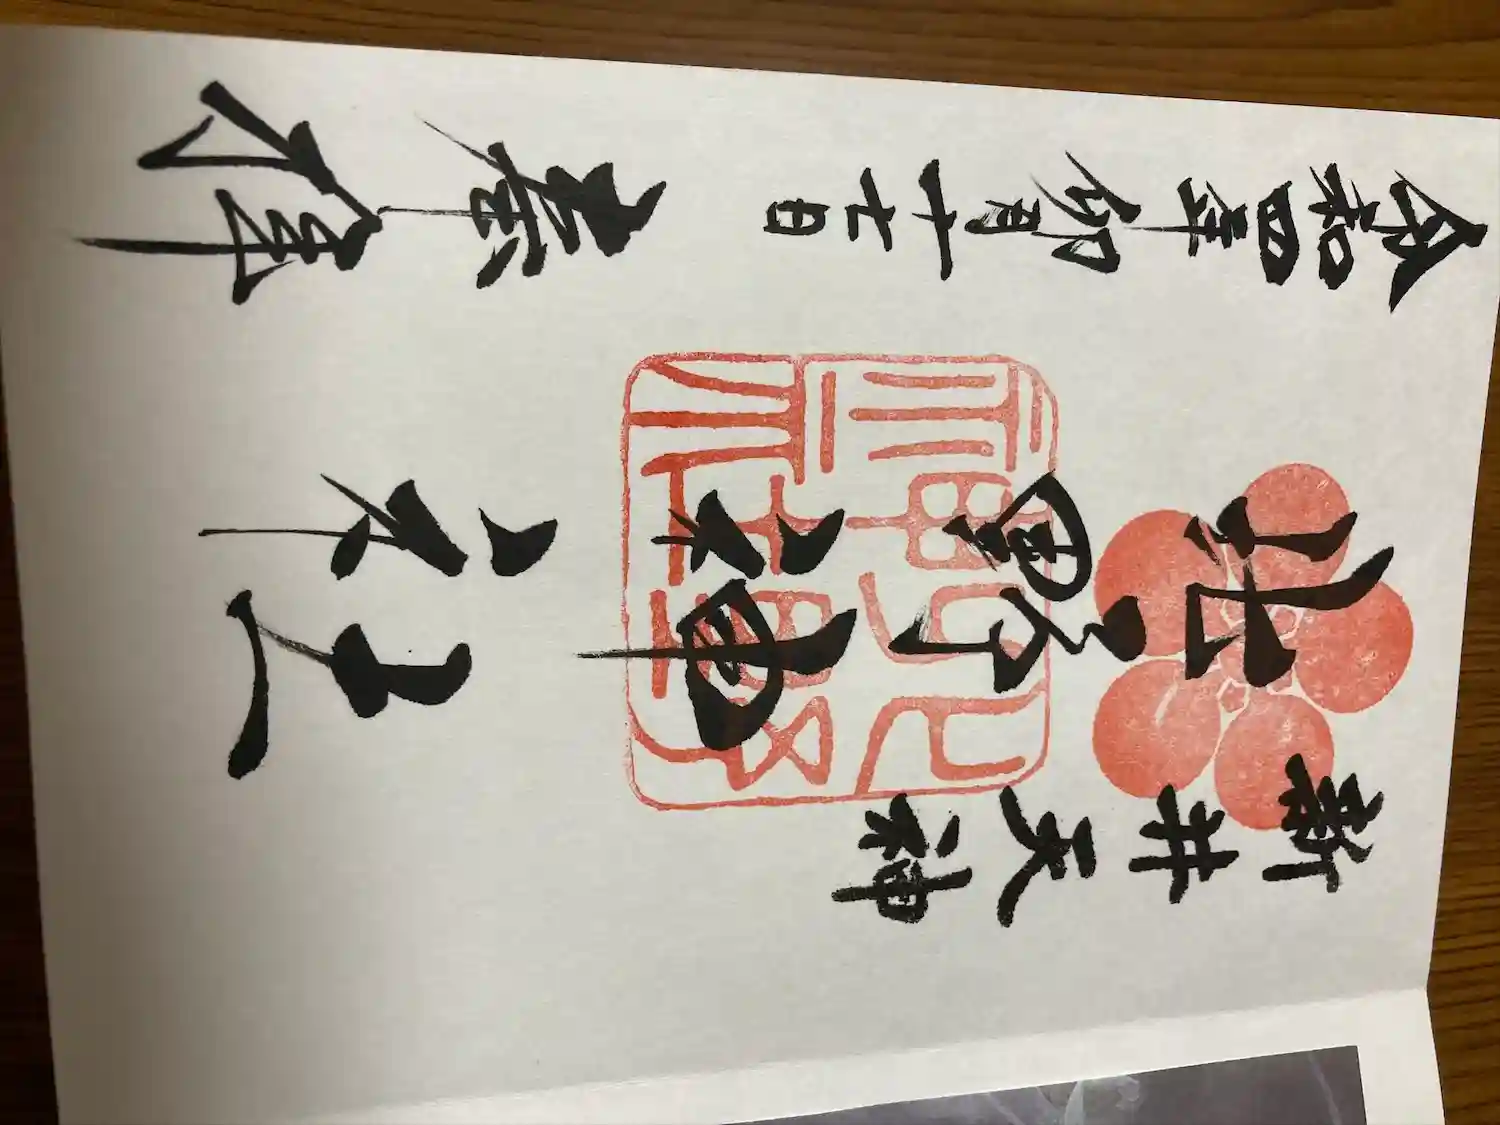 新井天神
北野神社
令和四年卯月十七日
奉拝